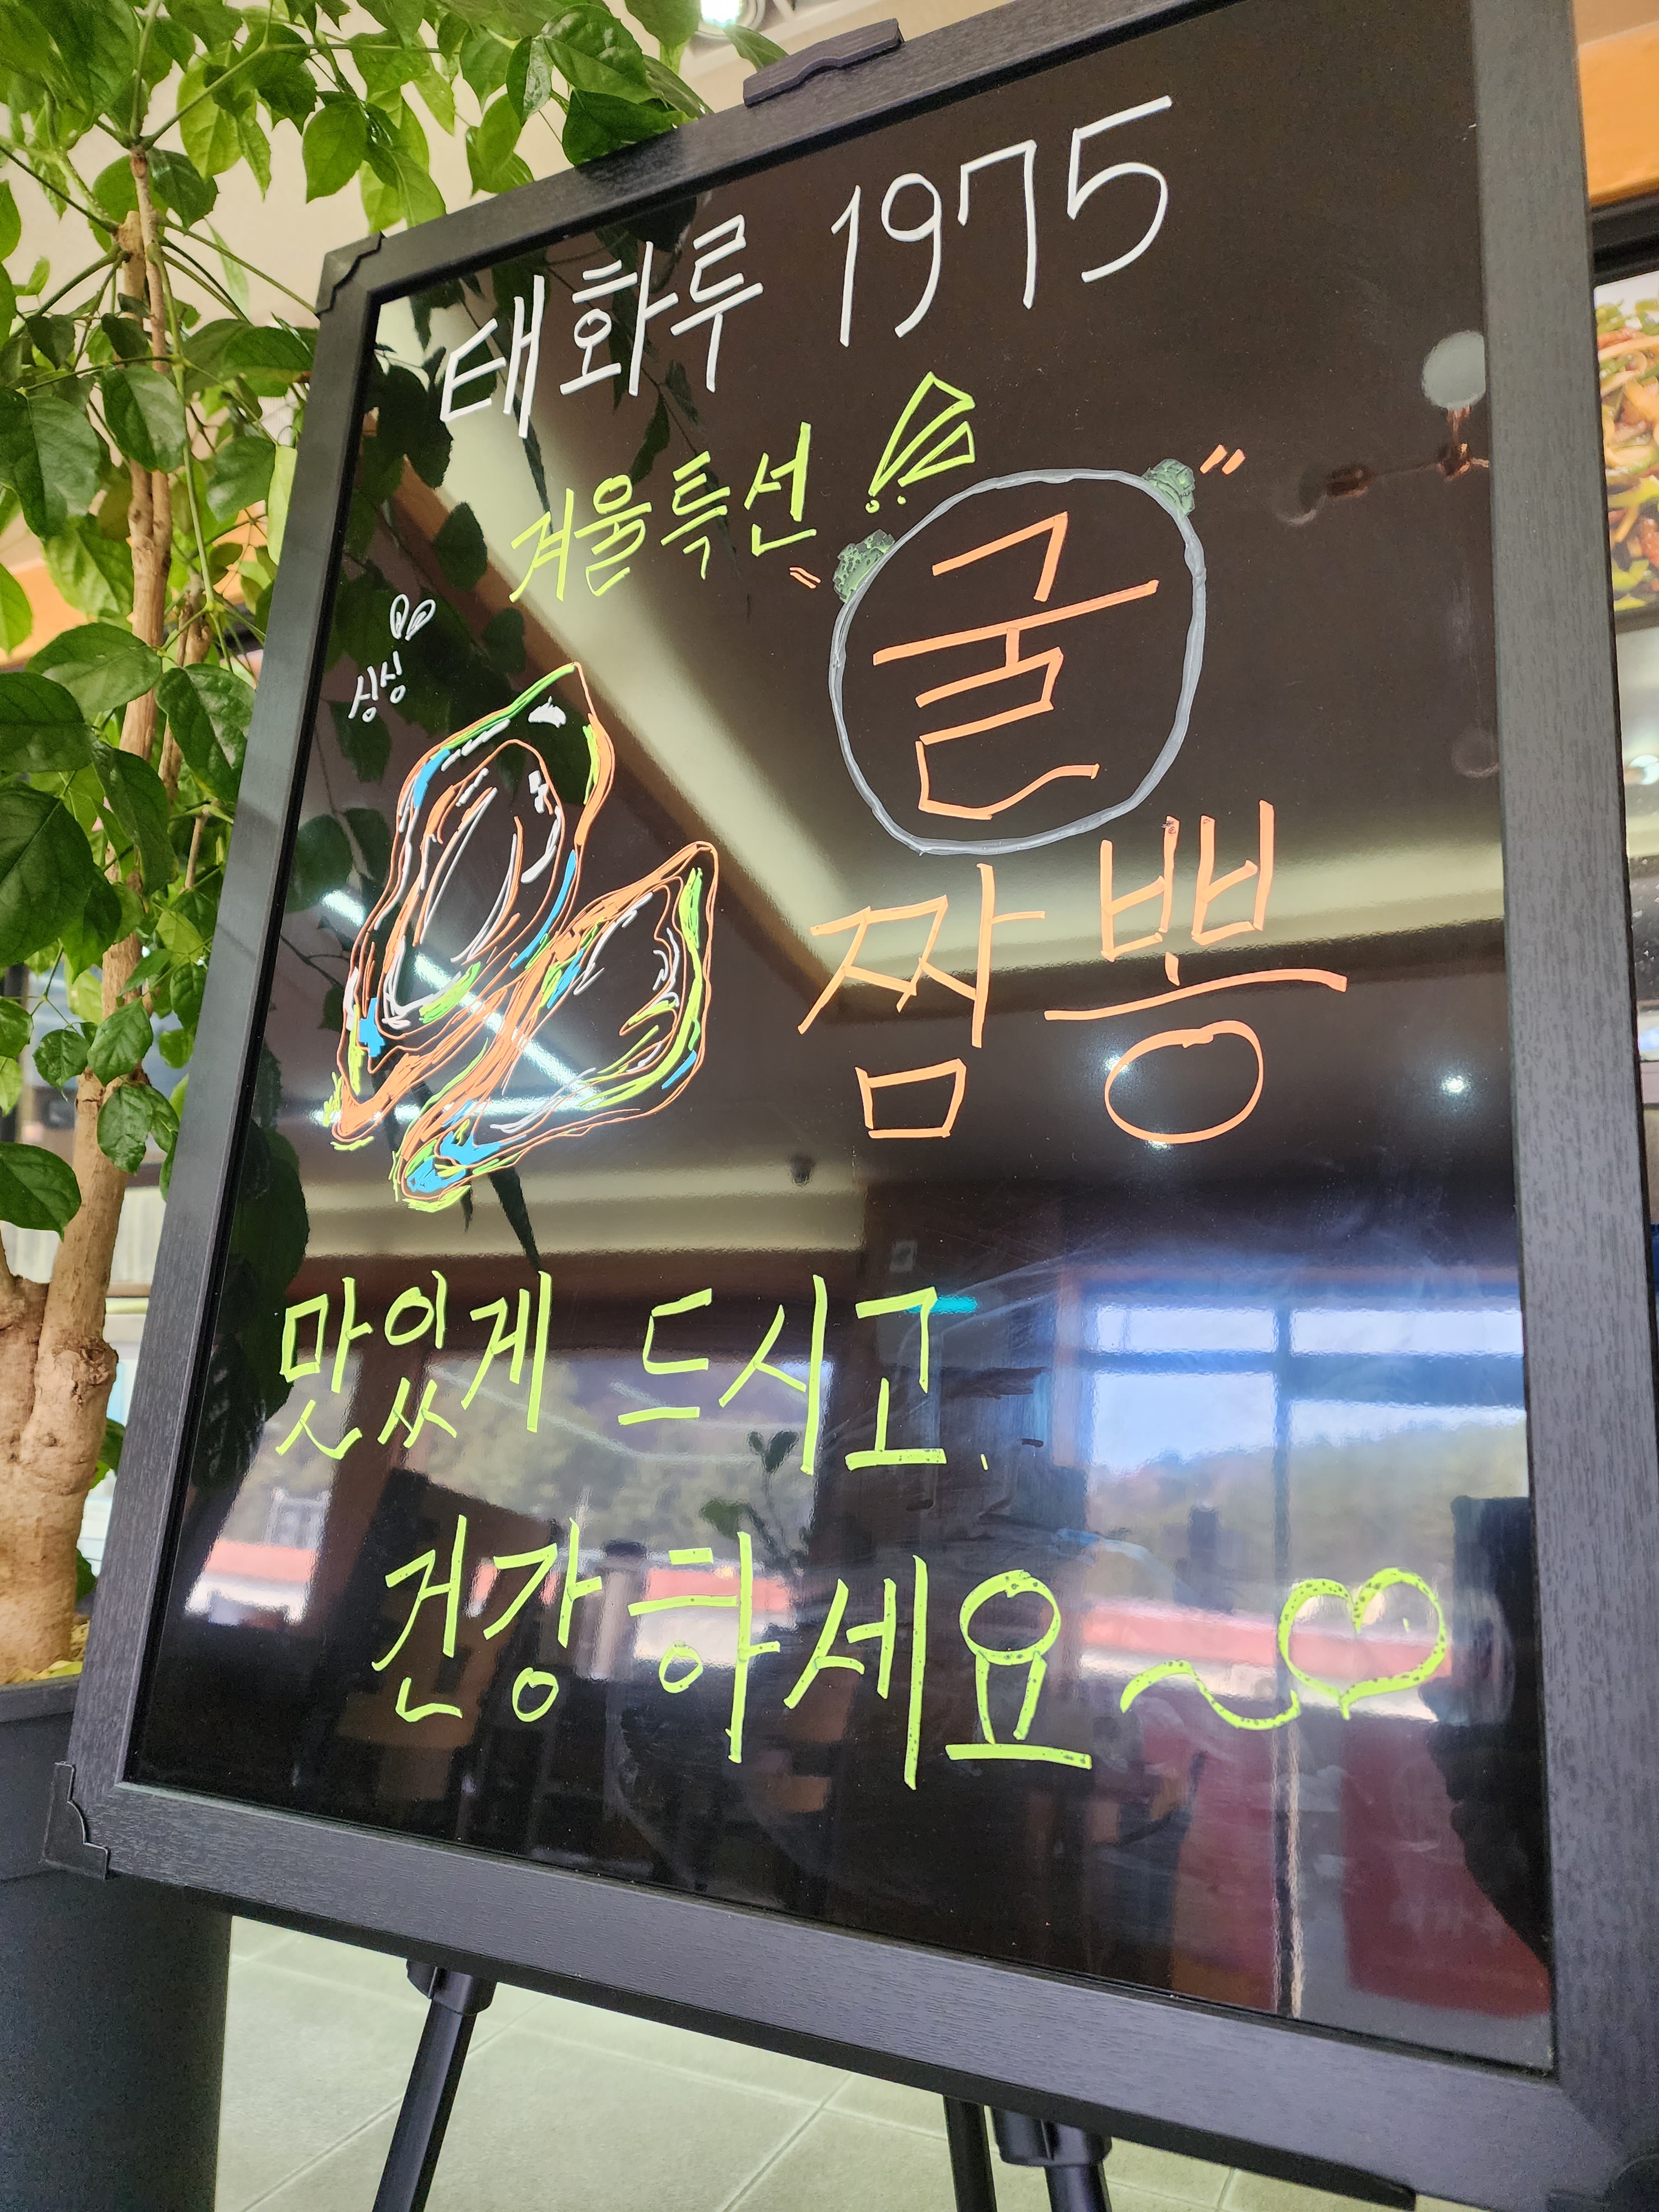 태화루 1975
겨울특선!!
싱싱
"굴"
짬뽕
맛있게 드시고,
건강하세요~♡